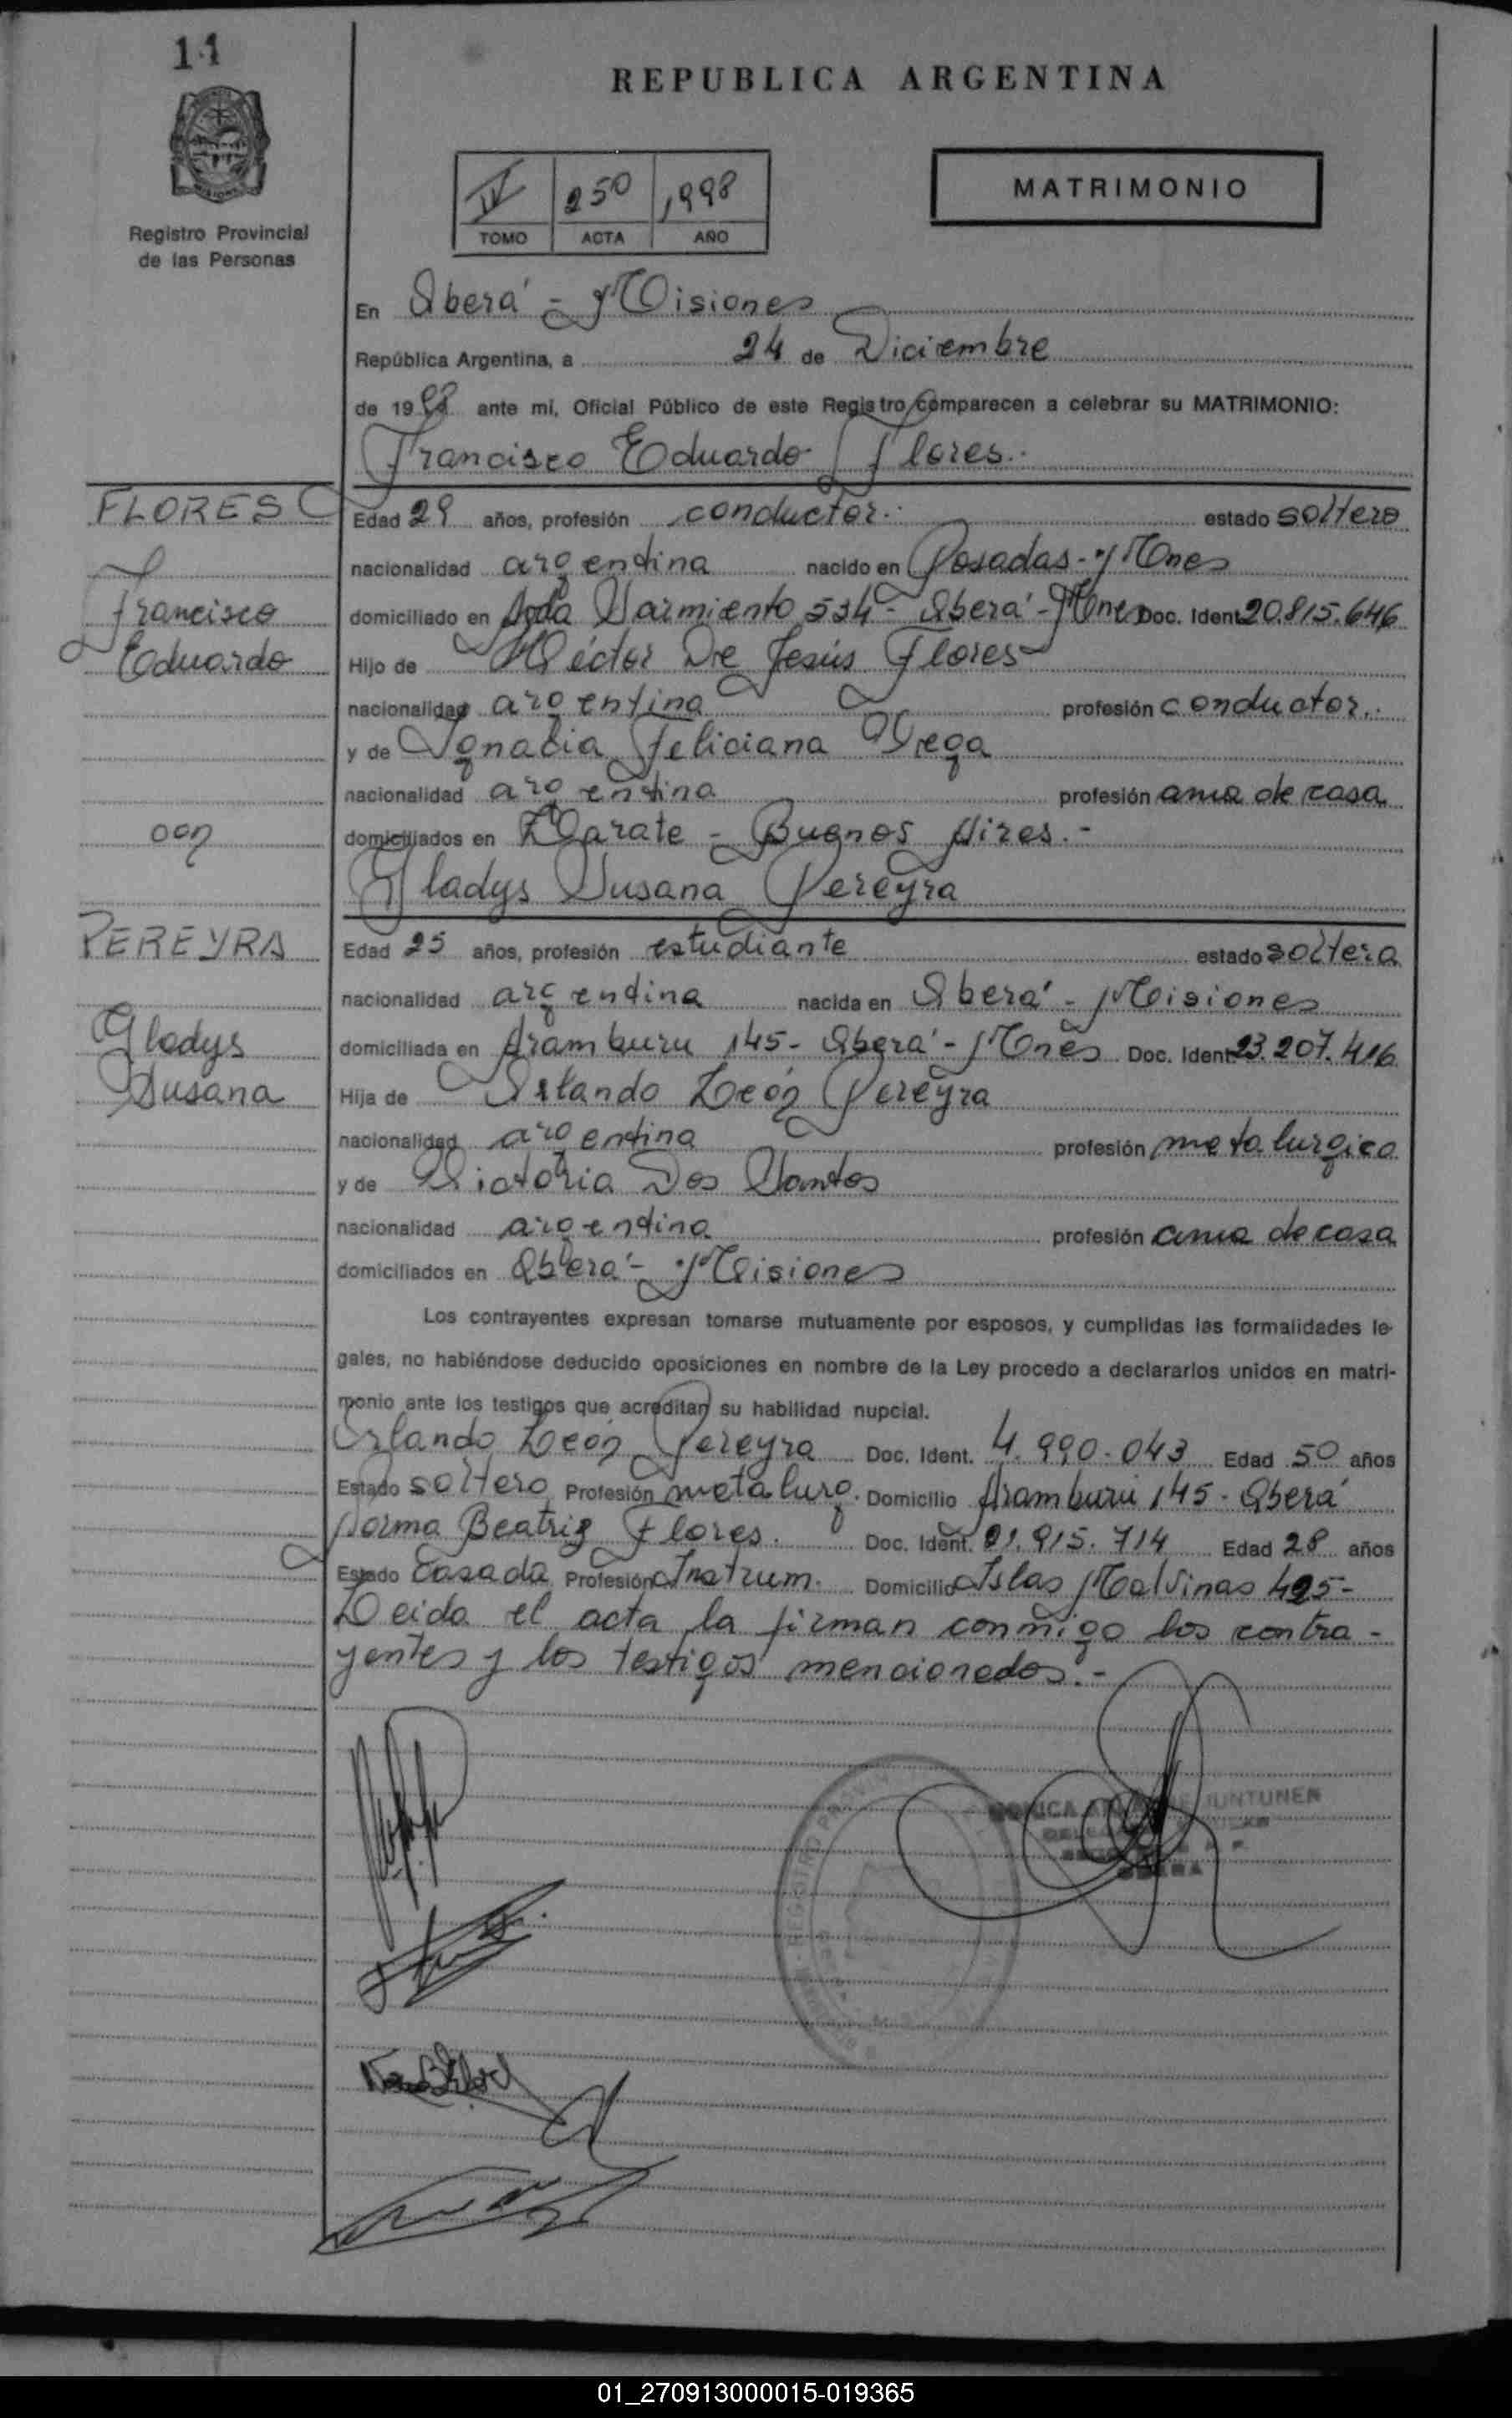 11
REPUBLICA ARGENTINA
Registro Provincial
de las Personas
IV 250 1998
TOMO ACTA AÑO
MATRIMONIO
En Oberá - Misiones
República Argentina, a 24 de Diciembre
de 1998 ante mi, Oficial Público de este Registro comparecen a celebrar su MATRIMONIO:
Francisco Eduardo Flores.
FLORES
Francisco
Eduardo
con
PEREYRA
Gladys
Susana
Edad 29 años, profesión conductor.- estado soltero
nacionalidad argentina nacido en Posadas - Mnes
domiciliado en Avda Sarmiento 534 - Oberá - Mnes Doc. Ident. 20.815.646
Hijo de Héctor De Jesús Flores
nacionalidad argentina profesión conductor.-
y de Ignacia Feliciana Vega
nacionalidad argentina profesión ama de casa
domiciliados en Zarate - Buenos Aires.-
Gladys Susana Pereyra
Edad 25 años, profesión estudiante estado soltera
nacionalidad argentina nacida en Oberá - Misiones
domiciliada en Aramburu 145 - Oberá - Mnes Doc. Ident. 23.207.416
Hija de Orlando León Pereyra
nacionalidad argentina profesión metalurgico
y de Victoria Dos Santos
nacionalidad argentina profesión ama de casa
domiciliados en Oberá - Misiones
Los contrayentes expresan tomarse mutuamente por esposos, y cumplidas las formalidades le-
gales, no habiéndose deducido oposiciones en nombre de la Ley procedo a declararlos unidos en matri-
monio ante los testigos que acreditan su habilidad nupcial.
Orlando León Pereyra Doc. Ident. 4.990.043 Edad 50 años
Estado soltero Profesión metalurg. Domicilio Aramburu 145 - Oberá
Norma Beatriz Flores. Doc. Ident. 21.915.714 Edad 28 años
Estado Casada Profesión Instrum. Domicilio Islas Malvinas 495-
Leida el acta la firman conmigo los contra-
yentes y los testigos mencionados.-
JUNTUNEN
01_270913000015-019365